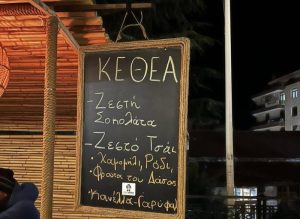 ΚΕΘΕΑ
- Ζεστή
Σοκολάτα
- Ζεστό Τσάι
• Χαμομήλι, Ρόδι,
• Φρούτα του Δάσους
• Κανέλλα-Γαρύφαλ